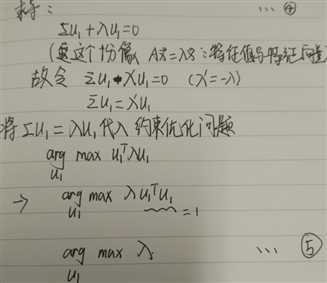 得: … ④
Σu₁+λu₁=0
(这个份像 Ax=λx:特征值与特征向量
故令 Σu₁-λ'u₁=0 (λ'=-λ)
Σu₁=λ'u₁
将Σu₁=λu₁代入约束优化问题
arg max u₁ᵀλu₁
u₁
→ arg max λu₁ᵀu₁
u₁ =1
arg max λ … ⑤
u₁